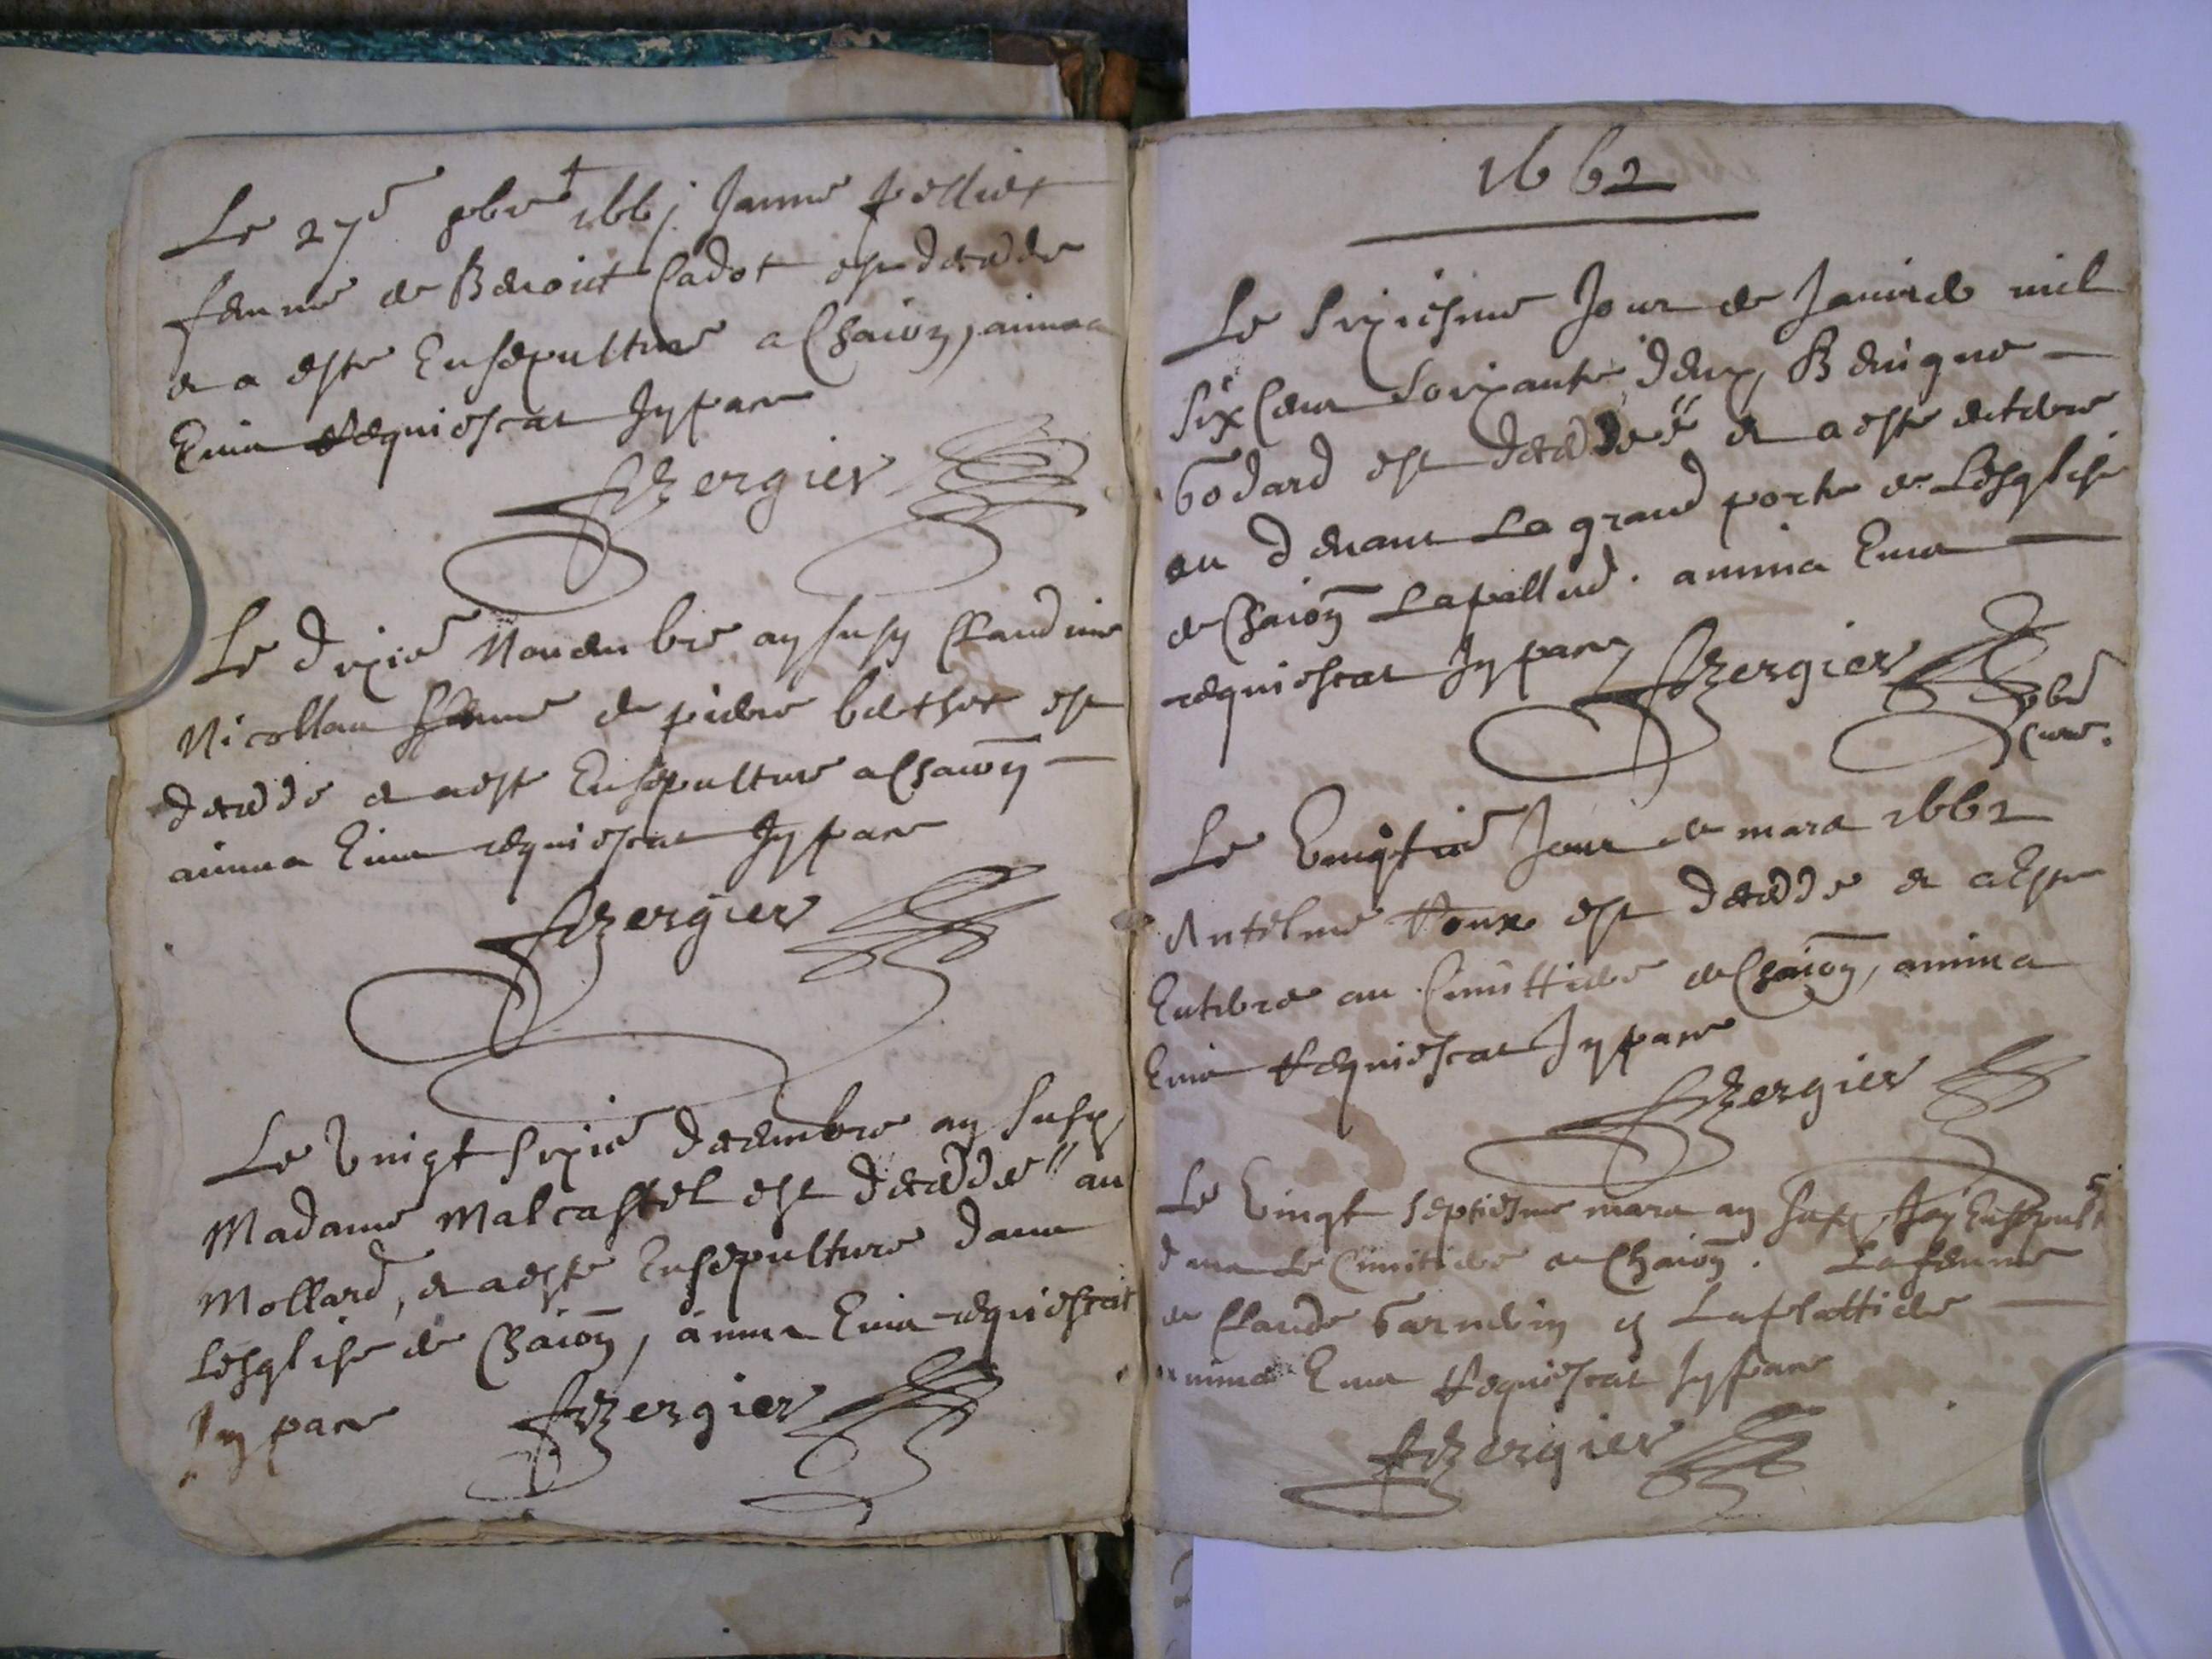 Le 27e 8bre 1661 Janne pelliet
femme de Benoict Cadot est decedee
et a este Ensepulture a Chaion, anima
Eius Requiescat In pace
Bergier
Le dixie Nouembre an susd Claudine
Nicollan femme de pierre berthet est
decedde et a este Ensepulture a Chaion
anima Eius requiescat In pace
Bergier
Le Vingt sixie decembre an susd
Madame Malcastel est deceddee au
Mollard, et a este Ensepulture dans
Lesglise de Chaion, anima Eius requiescat
In pace Bergier
1662
Le sixiesme Jour de Januier mil
six Cens soixante deux, Benigne
Godard est deceddee et a este enterre
au deuant La grand porte de Lesglise
de Chaion Lapallud. anima Eius
requiescat In pace Bergier
Cure.
Le Vingtie Jour de mars 1662
Antelme Roux est decedde et a Este
Enterre au Cimittiere de Chaion, anima
Eius Requiescat In pace
Bergier
Le Vingt septiesme mars an susd Jay Ensepult
dans Le Cimitiere de Chaion. La femme
de Claude Garnerin
anima Eius Requiescat In pace
Bergier